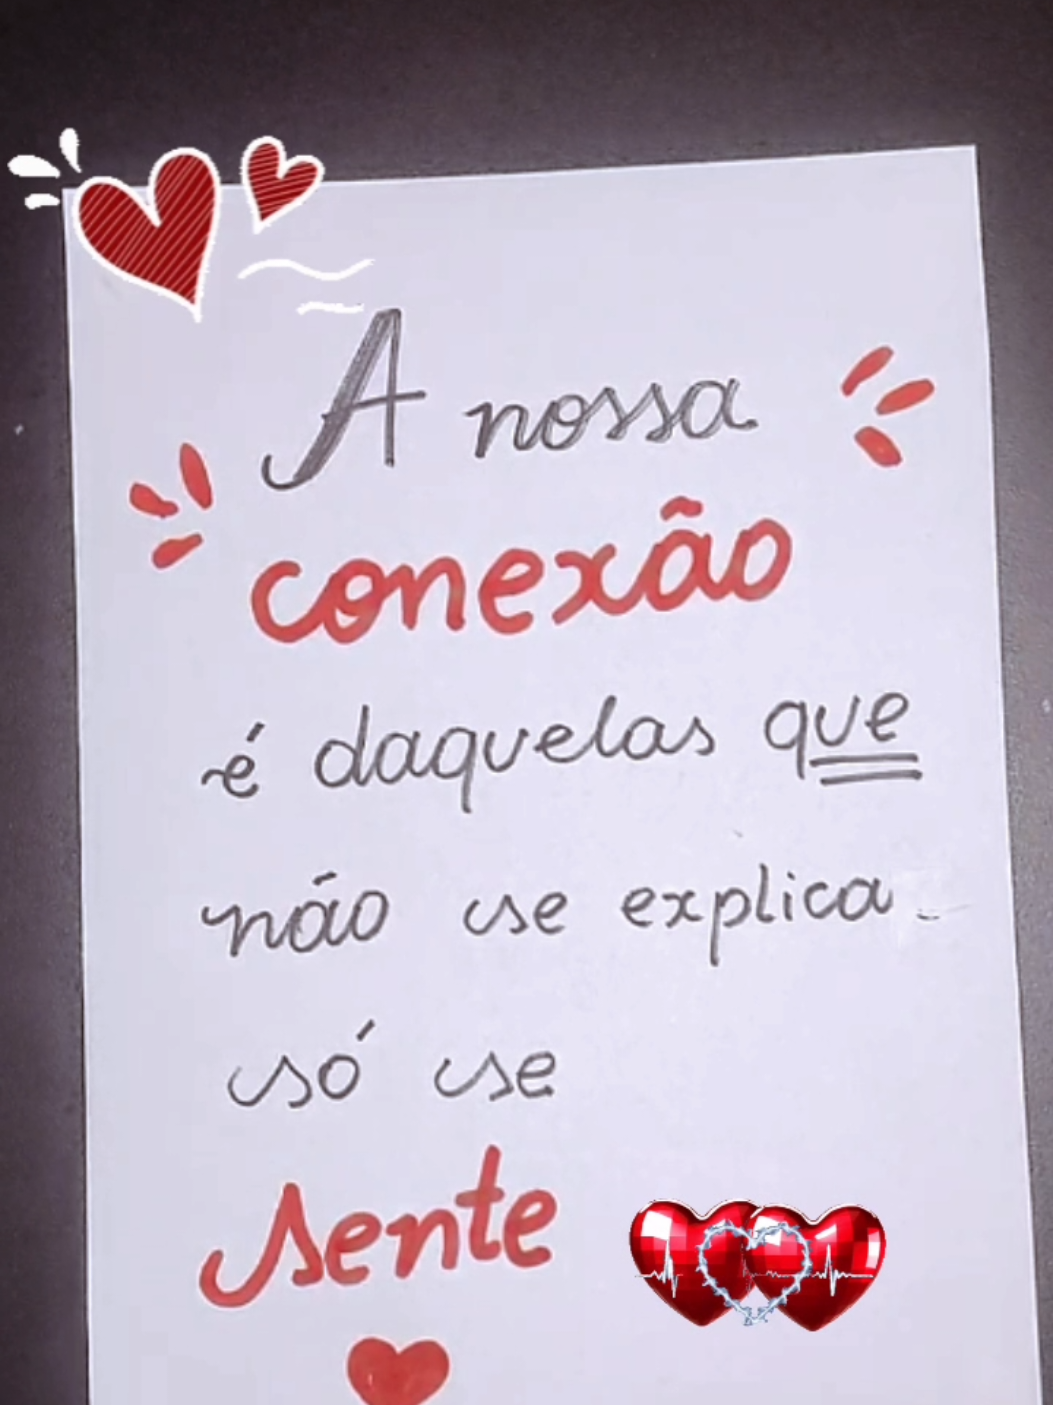 A nossa
conexão
é daquelas que
não se explica
só se
sente